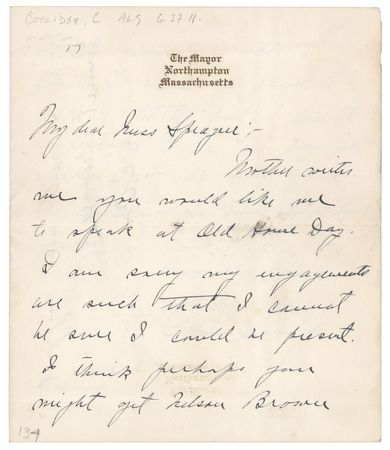 COOLIDGE, C ALS 6.27.11.
The Mayor
Northampton
Massachusetts
My dear Miss Sprague;-
Mother writes
me you would like me
to speak at Old Home Day.
I am sorry my engagements
are such that I cannot
be sure I could be present.
I think perhaps you
might get Nelson Brown
134